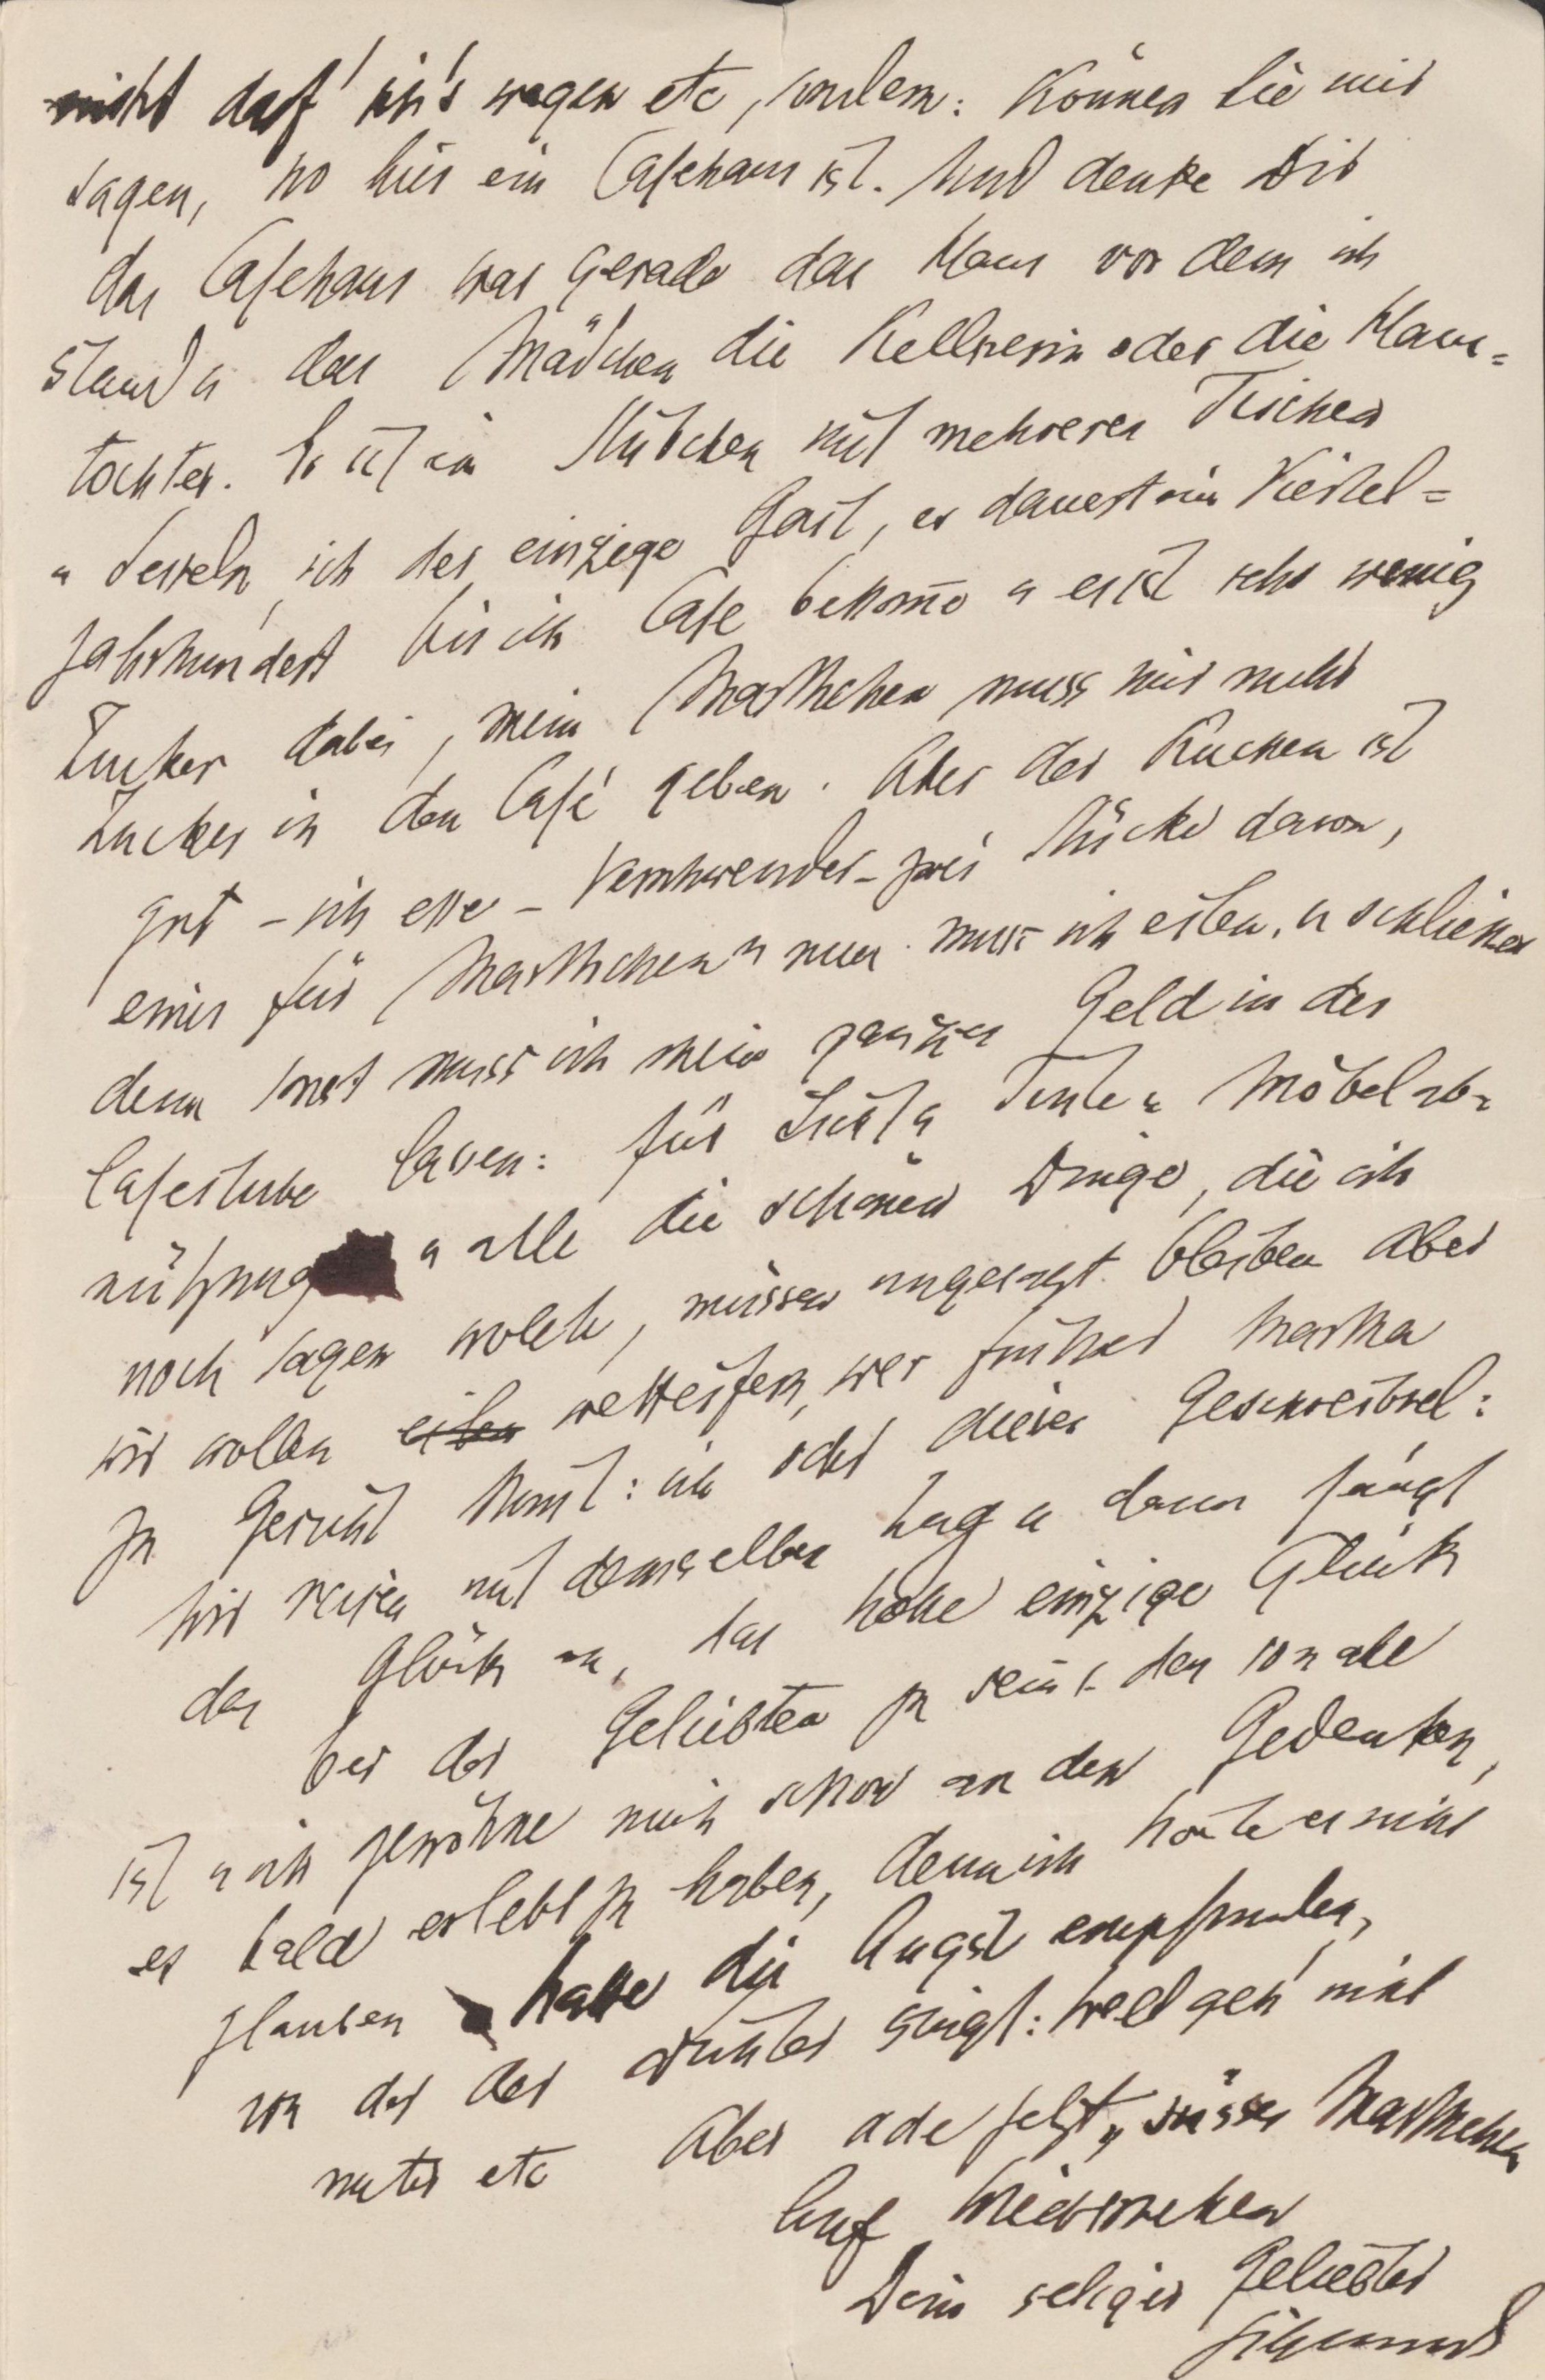 nicht darf ich's wagen etc, sondern: Können Sie mir
sagen, wo hier ein Cafehaus ist. Und denke Dir
das Cafehaus war gerade das Haus vor dem ich
stand u das Mädchen die Kellnerin oder die Haus=
tochter. Es ist ein Stübchen mit mehreren Tischen
u Sesseln, ich der einzige Gast, es dauert ein Viertel=
jahrhundert bis ich Cafe bekom̄e u es ist sehr wenig
Zucker dabei, mein Marthchen muss mir mehr
Zucker in den Café geben. Aber der Kuchen ist
gut – ich esse – Verschwender – zwei Stücke davon,
eines für Marthchen u nun muss ich eilen, u schließen
denn sonst muss ich mein ganzes Geld in der
Cafestube lassen: für Licht u Tinte u Möbelab=
nützung u alle die schönen Dinge, die ich
noch sagen wollte, müssen ungesagt bleiben Aber
wir wollen eilen wetteifern, wer früher Martha
zu Gesicht kom̄t: ich oder dieses Geschreibsel:
Wir reisen mit demselben Zug u dann fängt
das Glück an, das hohe einzige Glück
bei der Geliebten zu sein, das so
ist u ich gewöhne mich schon an den Gedanken,
es bald erlebt zu haben, denn ich konnte es nicht
glauben hatte die Angst empfunden,
von der der Dichter singt: Welt geh' nicht
unter etc Aber ade jetzt, süsses Marthchen
Auf Wiedersehen
Dein seliger Geliebter
Sigmund